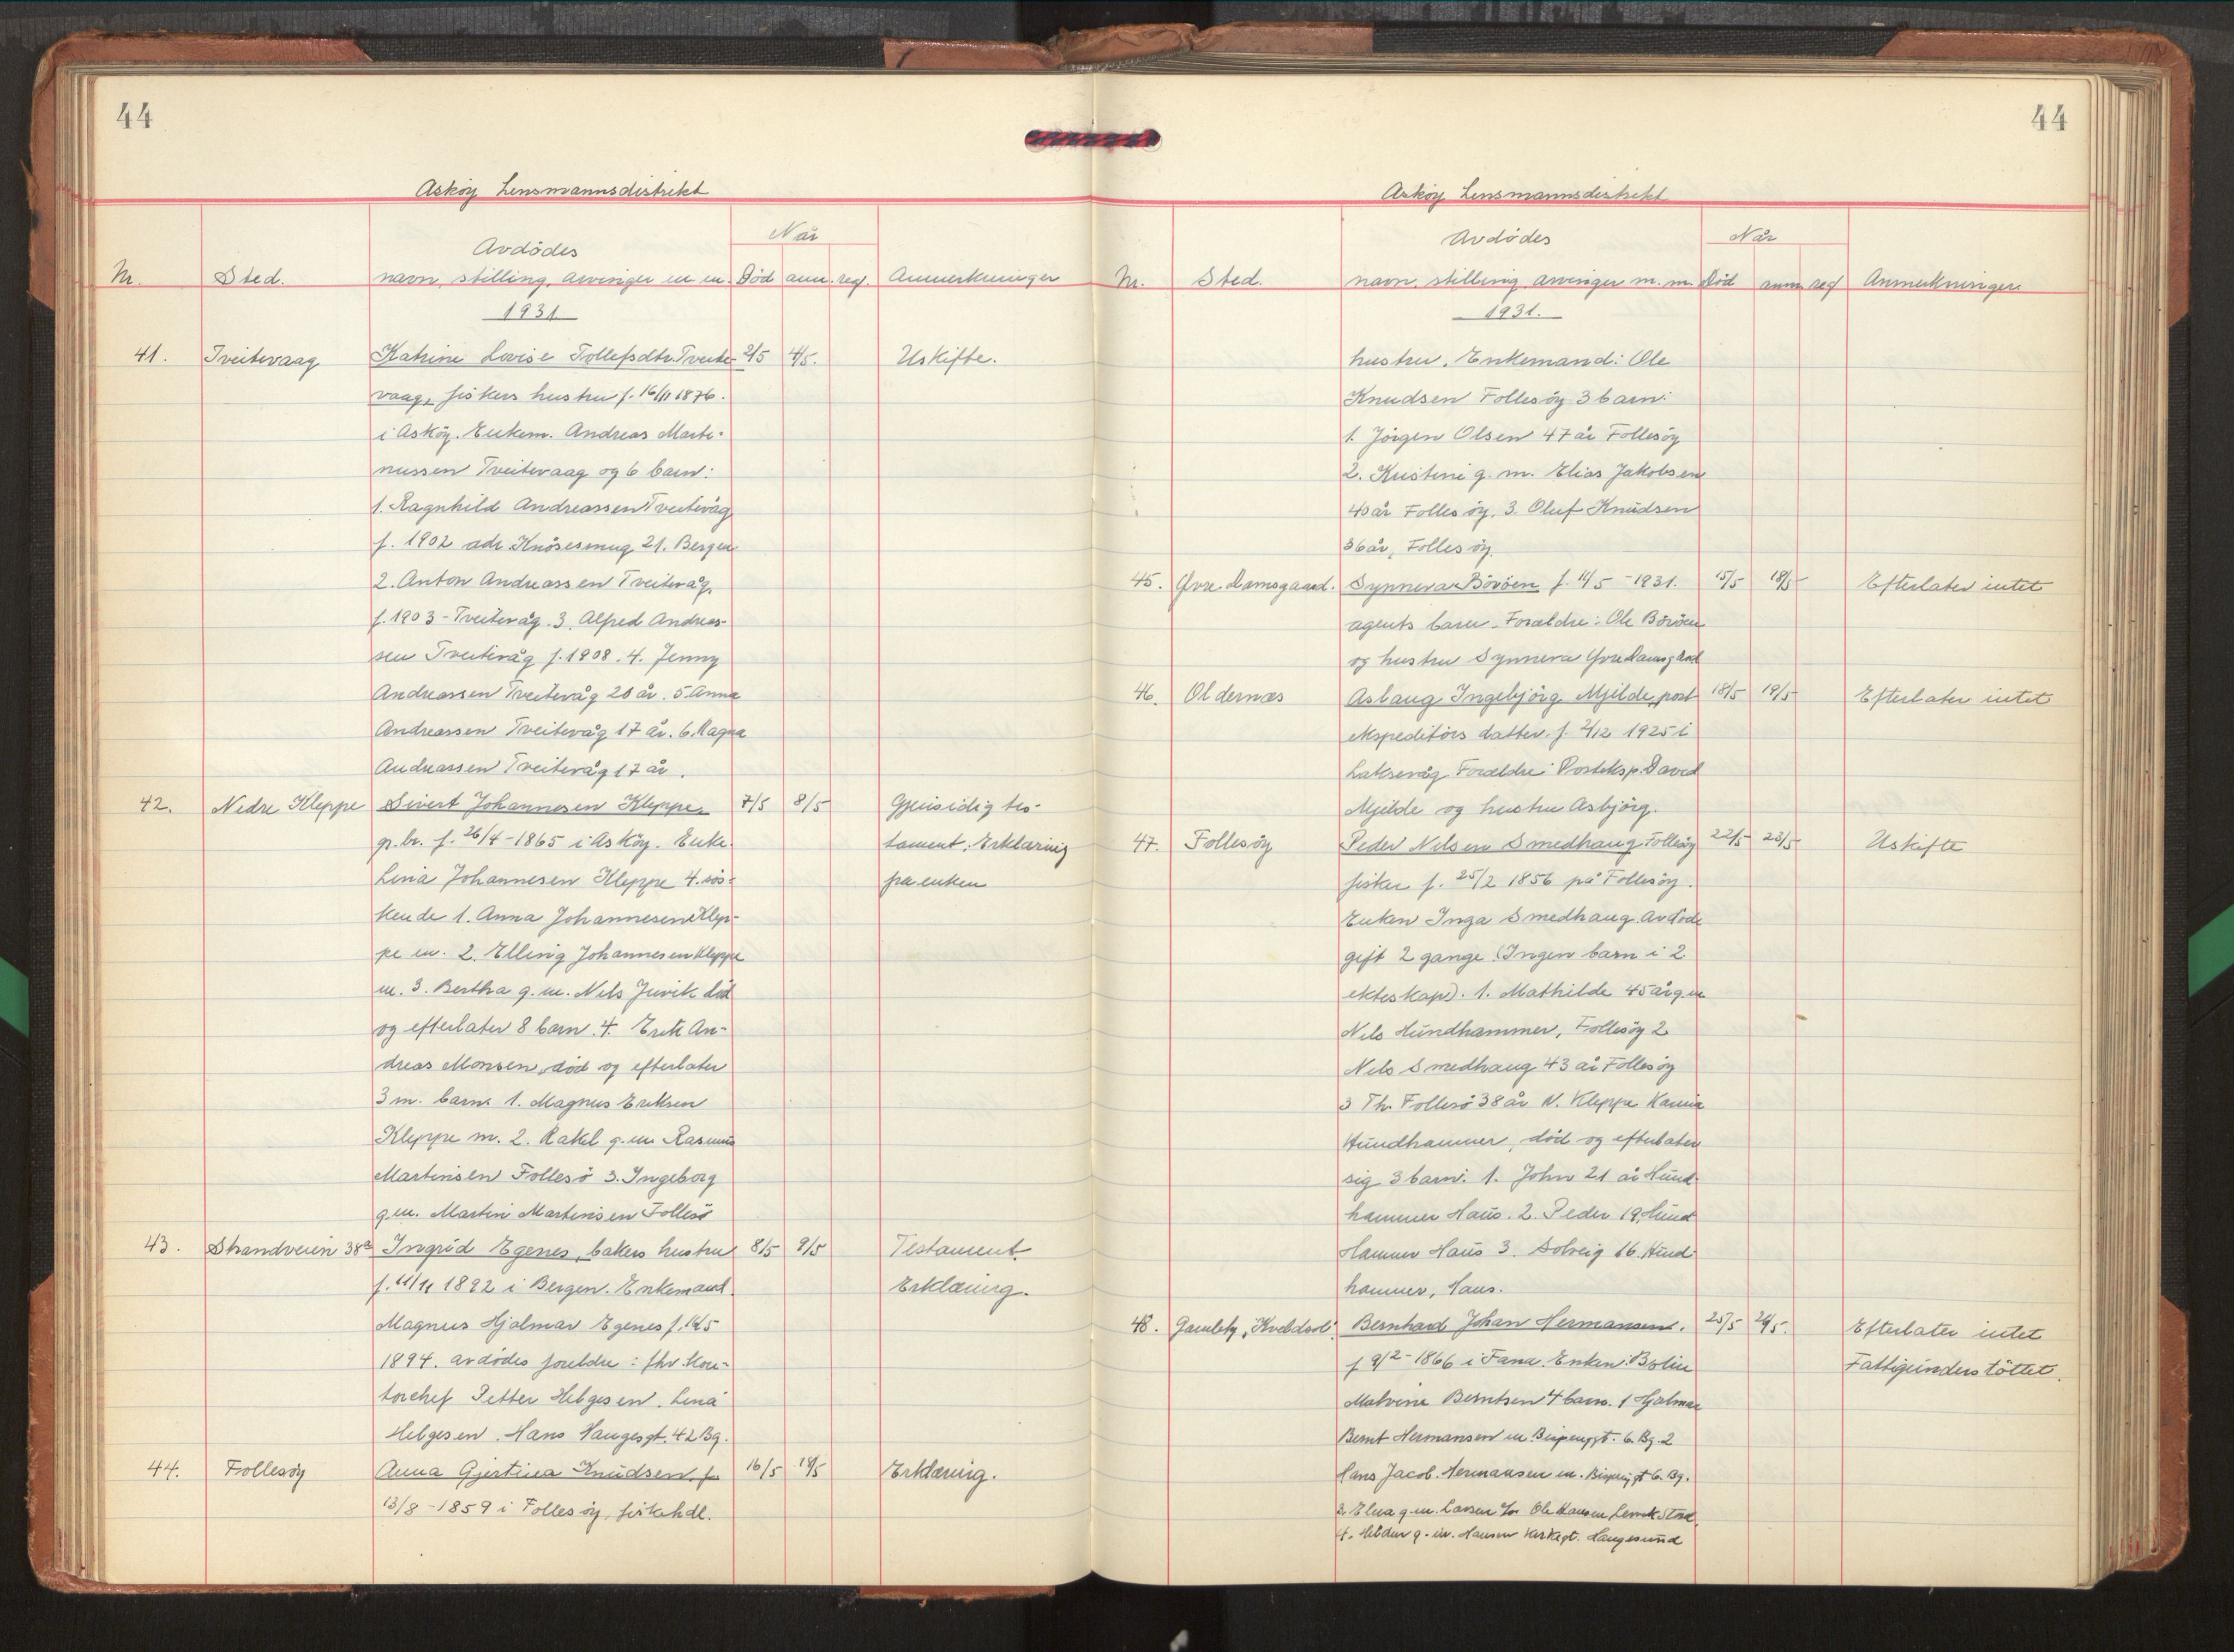 44
Asköy Lensmannsdistrikt
Når
Avdödes
Nr. Sted. navn, stilling, arvinger m.m. Död anm. reg. Anmerkninger
1931
41. Tveitevaag Katrine Lovise Tollefsdtr. Tveite- 2/5 4/5. Uskifte.
vaag, fiskers hustru f. 16/11 1876.
i Asköy. Enkem. Andreas Marti-
nussen Tveitevaag og 6 barn:
1. Ragnhild Andreassen Tveitevåg
f. 1902 adr. Knösesmug 21. Bergen
2. Anton Andreassen Tveitevåg.
f. 1903 - Tveitevåg. 3. Alfred Andreas-
sen Tveitevåg f. 1908. 4. Jenny
Andreassen Tveitevåg 20 år. 5 Anna
Andreassen Tveitevåg 17 år. 6. Magna
Andreassen Tveitevåg 17 år.
42. Nedre Kleppe Sivert Johannesen Kleppe, 7/5 8/5 Gjensidig tes-
gr. br. f. 26/4 - 1865 i Asköy. Enke tament. Erklæring
Lina Johannesen Kleppe 4. sös- fra enken
kende 1. Anna Johannesen Klep-
pe en. 2. Elling Johannesen Kleppe
m. 3. Bertha g. m. Nils Juvik död
og efterlater 8 barn. 4. Erik An-
dreas Monsen, död og efterlater
3 m. barn: 1. Magnus Eriksen
Kleppe m. 2. Rakel g. m. Rasmus
Martinsen Follesö 3. Ingeborg
g.m. Martin Martinsen Follesö
43. Strandveien 38a Ingrid Egenes, bakers hustru 8/5 9/5 Testament.
f. 11/11 1892 i Bergen. Enkemand Erklæring.
Magnus Hjalmar Egenes f. 14/5
1894. avdödes foreldre: fhv. Kon-
torchef Petter Helgesen. Lina
Helgesen. Hans Haugesgt. 42 Bg.
44. Follesöy Anna Gjertina Knudsen, f. 16/5 19/5 Erklæring.
13/8 - 1859 i Follesöy, fiskehdl.
44
Asköy Lensmannsdistrikt
Når
Avdödes
Nr. Sted. navn, stilling arvinger m. m. Död anm reg Anmerkninger
1931.
hustru. Enkemand: Ole
Knudsen Follesöy 3 barn:
1. Jörgen Olsen 47 år Follesöy
2. Kristine g. m. Elias Jakobsen
40 år Follesöy. 3. Oluf Knudsen
36 år, Follesöy.
45. Övre Damsgaard. Synneva Böröen f. 11/5 - 1931. 15/5 18/5 Efterlater intet
agents barn. Forældre: Ole Böröen
og hustru Synneva Övre Damsgård
46. Oldernæs Aslaug Ingebjörg Mjelde, post 18/5 19/5 Efterlater intet
ekspeditörs datter. f. 2/12 1925 i
Laksevåg Forældre: Posteksp. David
Mjelde og hustru Asbjörg.
47. Follesöy Peder Nilsen Smedhaug Follesöy 22/5 23/5 Uskifte
fisker f. 25/2 1856 på Follesöy.
Enken Inga Smedhaug. Avdöde
gift 2 gange. (Ingen barn i 2.
ekteskap). 1. Mathilde 45 år g.m
Nils Hundhammer, Follesöy 2
Nils Smedhaug 43 år Follesöy
3 Th. Follesö 38 år N. Kleppe
Hundhammer, död og efterlater
sig 3 barn: 1. John 21 år Hund-
hammer Haus. 2. Peder 19, Hund
Hammer Haus 3. Solveig 16. Hund
hammer, Haus.
48. Bernhard Johan Hermansen. 25/5 26/5. Efterlater intet
f 9/2 - 1866 i Fana. Enken: Fattigunderstöttet.
Malvine Berntsen 4 barn. 1 Hjalmar
Bernt Hermansen m. 6. Bg. 2
Hans Jacob. Hermansen m. 6. Bg.
3. g.m. Larsen Ole Hansen
4. g. m. Hansen Kirkegt. Langesund